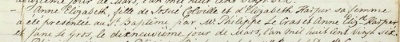 deuxième jour de Mars, l'an mil huit cent vingt six.
Anne Elizabeth, fille de Josué Colville et d'Elizabeth Harper sa femme
a été présentée au St. Baptême par Mr. Philippe Le Gros et Anne Eliz. Harper
femme le Gros, le dix neuvième jour de Mars, l'an mil huit cent vingt six